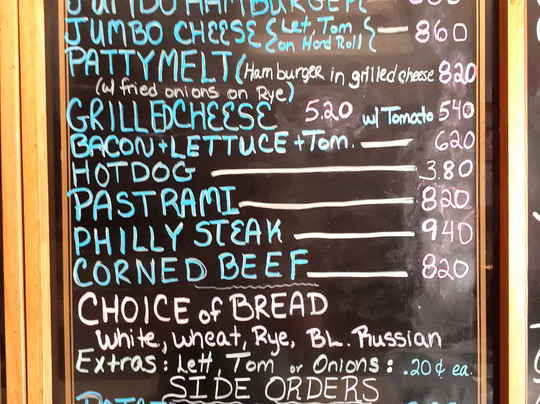 JUMBO HAMBURGER
JUMBO CHEESE {Let, Tom on Hard Roll} 860
PATTY MELT (Hamburger in grilled cheese 820
(w/ fried onions on Rye)
GRILLED CHEESE 5.20 w/ Tomato 540
BACON + LETTUCE + TOM. 620
HOTDOG 3.80
PASTRAMI 820
PHILLY STEAK 940
CORNED BEEF 820
CHOICE of BREAD
White, Wheat, Rye, BL. Russian
Extras: Lett, Tom or Onions: .20¢ ea.
SIDE ORDERS